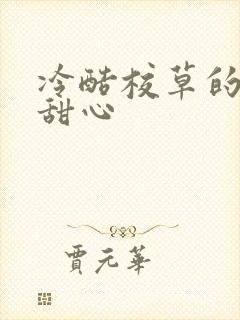 冷酷校草的
甜心
贾元华